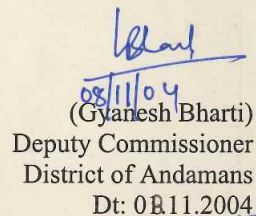 08/11/04
(Gyanesh Bharti)
Deputy Commissioner
District of Andamans
Dt: 08.11.2004